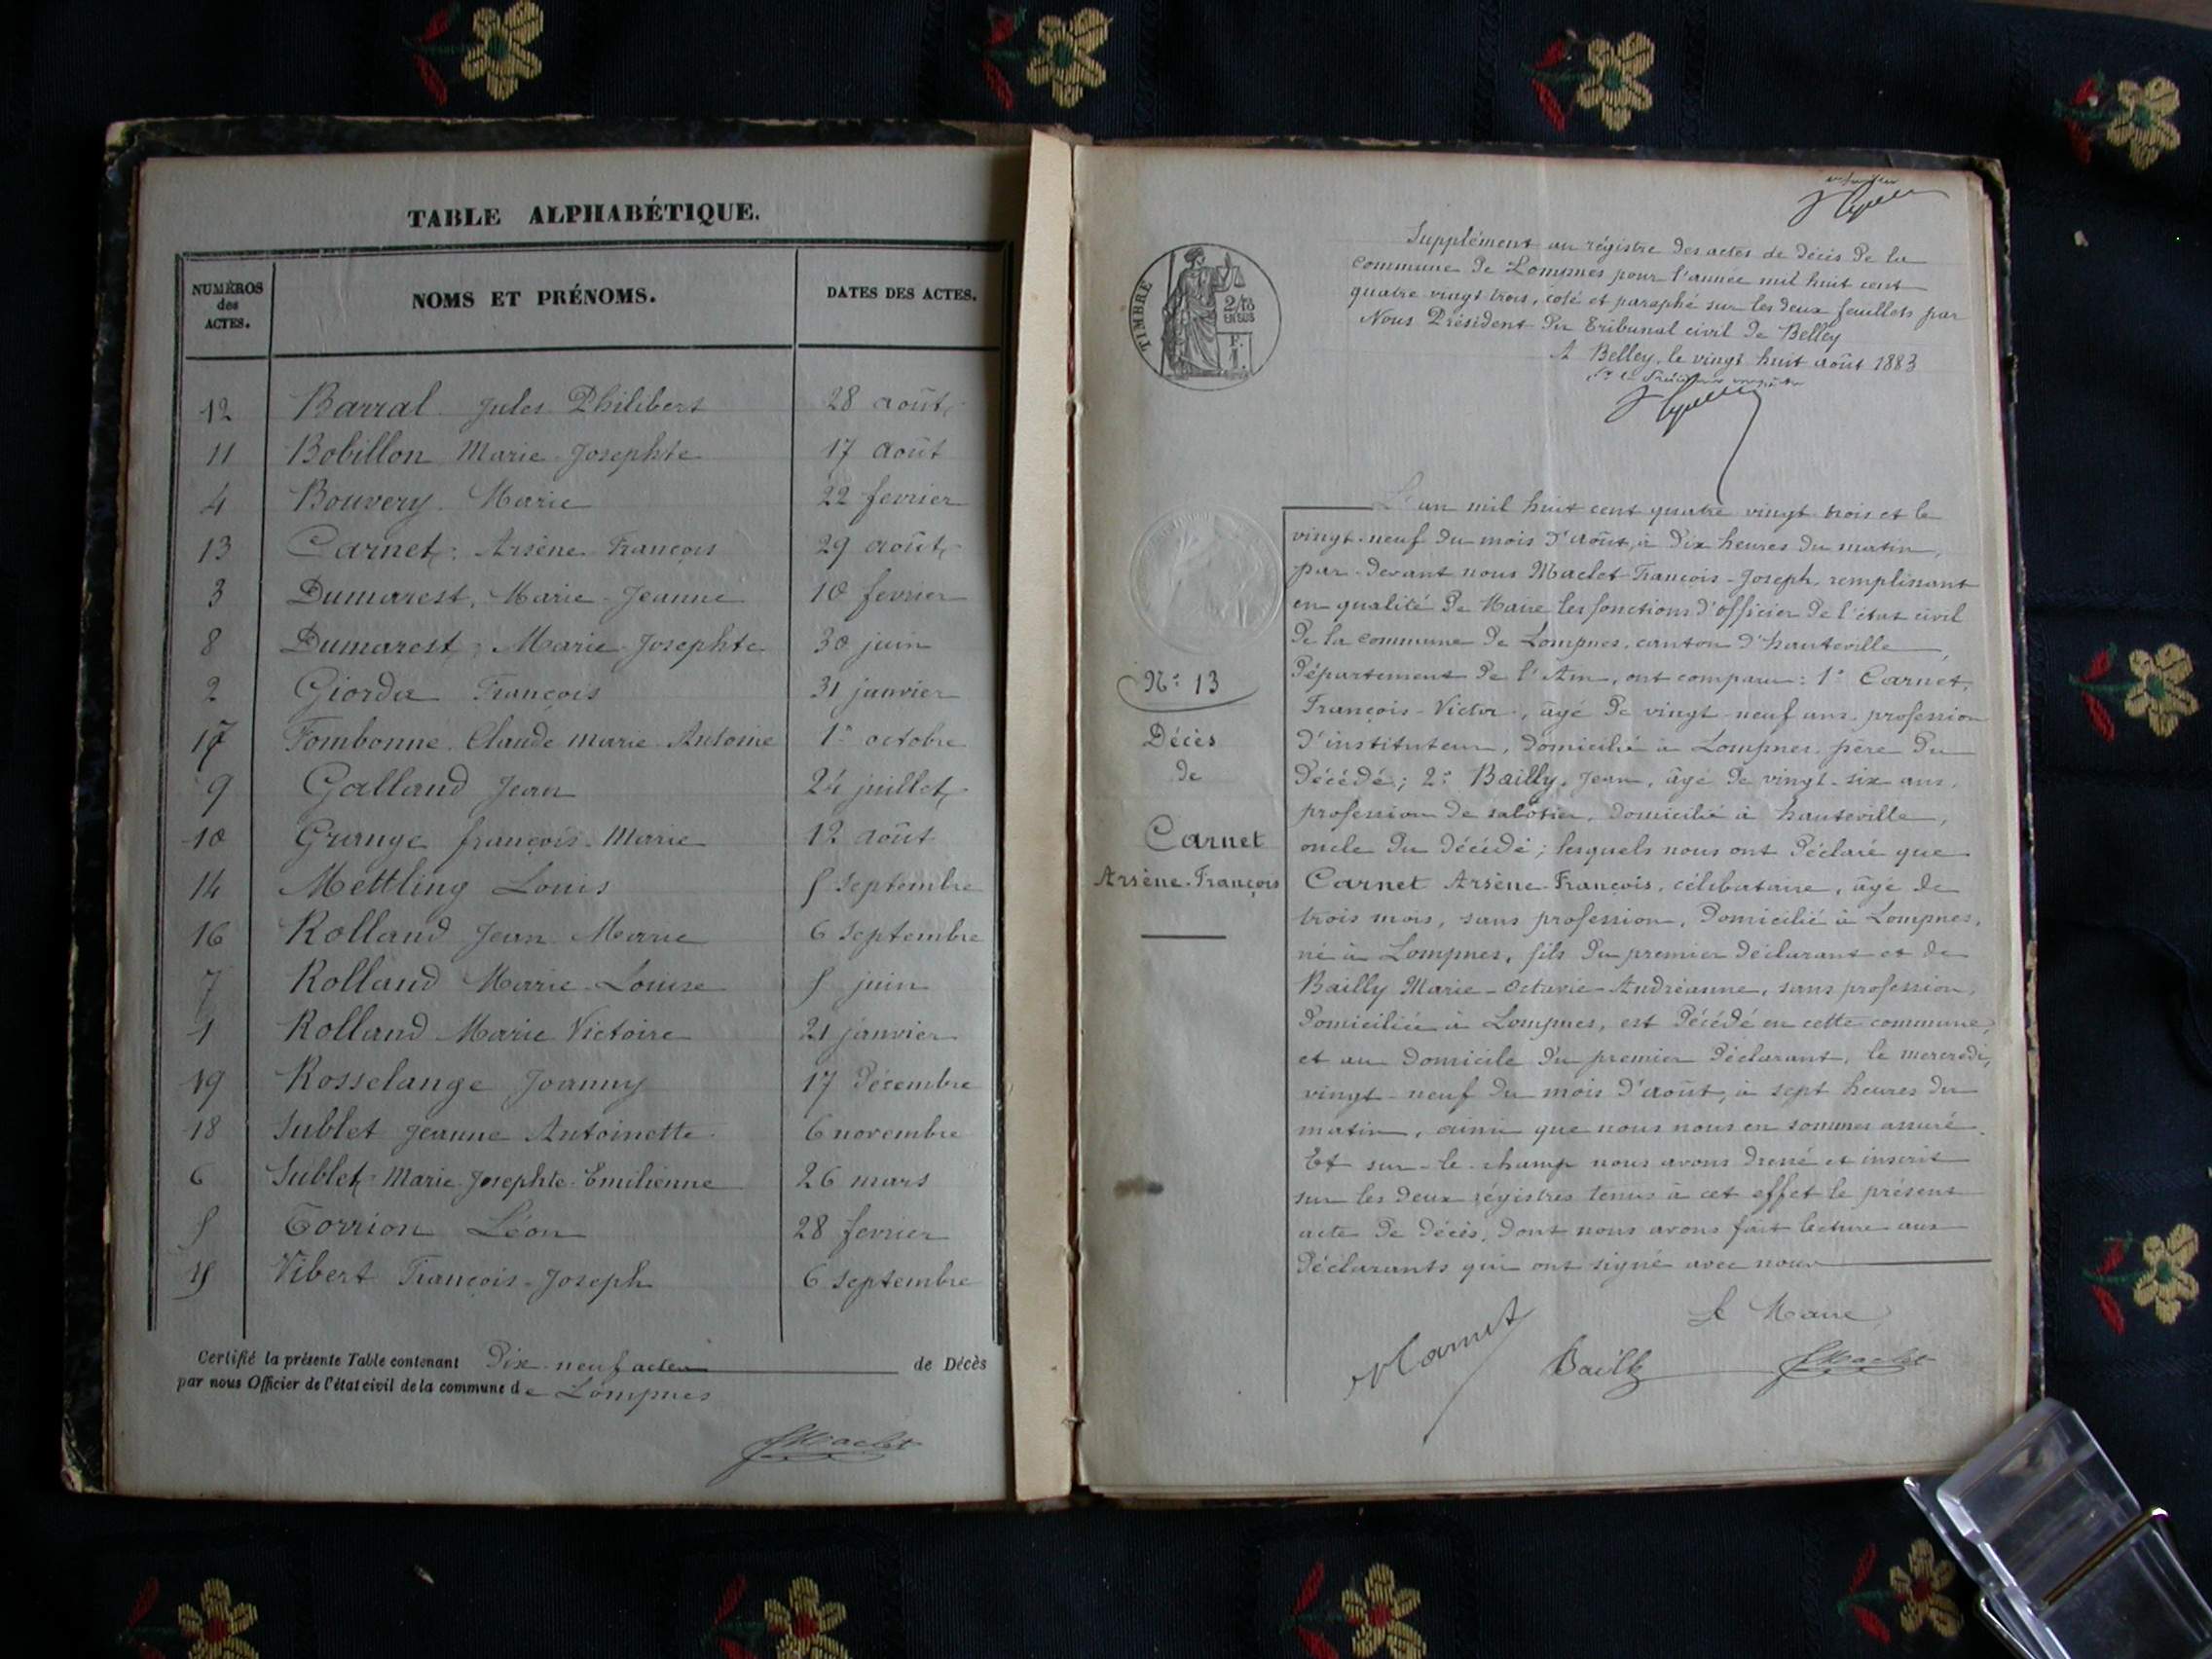 TABLE ALPHABÉTIQUE.
NUMÉROS des ACTES. NOMS ET PRÉNOMS. DATES DES ACTES.
12 Barral Jules Philibert 28 août
11 Bobillon Marie Josephte 17 août
4 Bouvery Marie 22 fevrier
13 Carnet, Arsène François 29 août
3 Dumarest, Marie-Jeanne 10 fevrier
8 Dumarest, Marie Josephte 30 juin
2 Giorda François 31 janvier
17 Fombonne Claude Marie Antoine 1er octobre
9 Galland Jean 24 juillet
10 Grange françois-Marie 12 août
14 Mettling Louis 5 septembre
16 Rolland Jean Marie 6 septembre
7 Rolland Marie-Louise 5 juin
1 Rolland Marie Victoire 21 janvier
19 Rosselange Joanny 17 décembre
18 Sublet Jeanne Antoinette 6 novembre
6 Sublet Marie Josephte Emilienne 26 mars
5 Torrion Léon 28 fevrier
15 Vibert François-Joseph 6 septembre
Certifié la présente Table contenant Dix-neuf actes de Décès
par nous Officier de l'état civil de la commune de Lompnes
FMaclet
Supplément au régistre des actes de décès de la
commune de Lompnes pour l'année mil huit cent
quatre vingt trois, coté et paraphé sur les deux feuillets par
Nous Président du Tribunal civil de Belley
A Belley, le vingt huit août 1883
TIMBRE
2/10 EN SUS
F. 1.
L'an mil huit cent quatre vingt trois et le
vingt-neuf du mois d'août, à dix heures du matin,
par-devant nous Maclet François-Joseph, remplissant
en qualité de Maire les fonctions d'officier de l'état civil
de la commune de Lompnes, canton d'hauteville,
département de l'Ain, ont comparu: 1° Carnet,
François-Victor, âgé de vingt-neuf ans profession
d'instituteur, domicilié à Lompnes père du
décédé; 2° Bailly, Jean, âgé de vingt-six ans,
profession de sabotier, domicilié à hauteville,
oncle du décédé; lesquels nous ont déclaré que
Carnet Arsène-François, célibataire, âgé de
trois mois, sans profession, domicilié à Lompnes,
né à Lompnes, fils du premier déclarant et de
Bailly Marie-Octavie-Andréanne, sans profession,
domiciliée à Lompnes, est décédé en cette commune,
et au domicile du premier déclarant, le mercredi,
vingt-neuf du mois d'août, à sept heures du
matin, ainsi que nous nous en sommes assuré.
Et sur-le-champ nous avons dressé et inscrit
sur les deux régistres tenus à cet effet le présent
acte de décès, dont nous avons fait lecture aux
déclarants qui ont signé avec nous
N° 13
Décès
de
Carnet
Arsène-François
Le Maire
VCarnet Bailly FMaclet